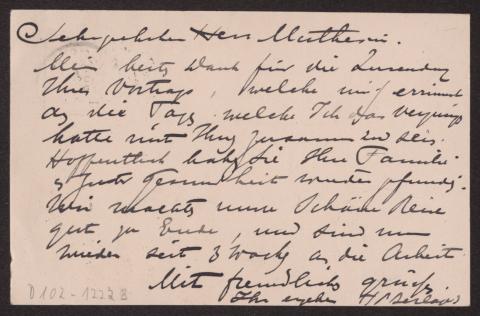 Sehr geehrter Herr Muthesius.
Mein besten Dank für die Zusendung
Ihres Vortrags, welche mich erinnert
an die Tage welche Ich das Vergnügen
hatte mit Ihnen zusammen zu sein.
Hoffentlich haben Sie Ihre Familie
in guter Gesundheit wieder gefunden.
Wir machten unsere Schöne Reise
gut zu Ende, und sind nun
wieder seit 3 Wochen an die Arbeit
Mit freundlichen grüssen
Ihr ergeben H P Berlage
D 102 - 1223 B